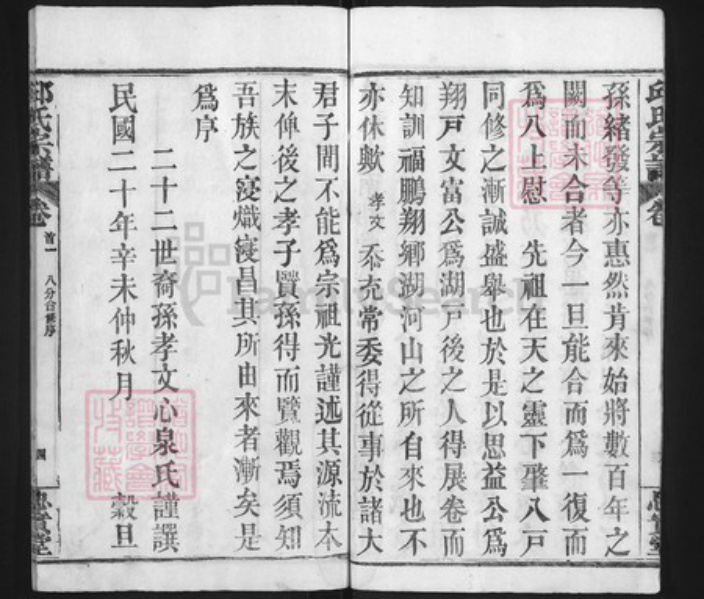 邱氏宗譜
卷
孫緒發等亦惠然肯來始將數百年之
闕而未合者今一旦能合而為一復而
為八上慰 先祖在天之靈下肇八戶
同修之漸誠盛舉也於是以思益公為
翔戶文富公為湖戶後之人得展卷而
知訓福鵬翔鄉湖河山之所自來也不
亦休歟 孝文 忝充常委得從事於諸大
君子間不能為宗祖光謹述其源流本
末俾後之孝子賢孫得而覽觀焉須知
吾族之寖熾寖昌其所由來者漸矣是
為序
二十二世裔孫孝文心泉氏謹譔
民國二十年辛未仲秋月 穀旦
邱氏宗譜
卷
首一 八分合修序
四
FamilySearch